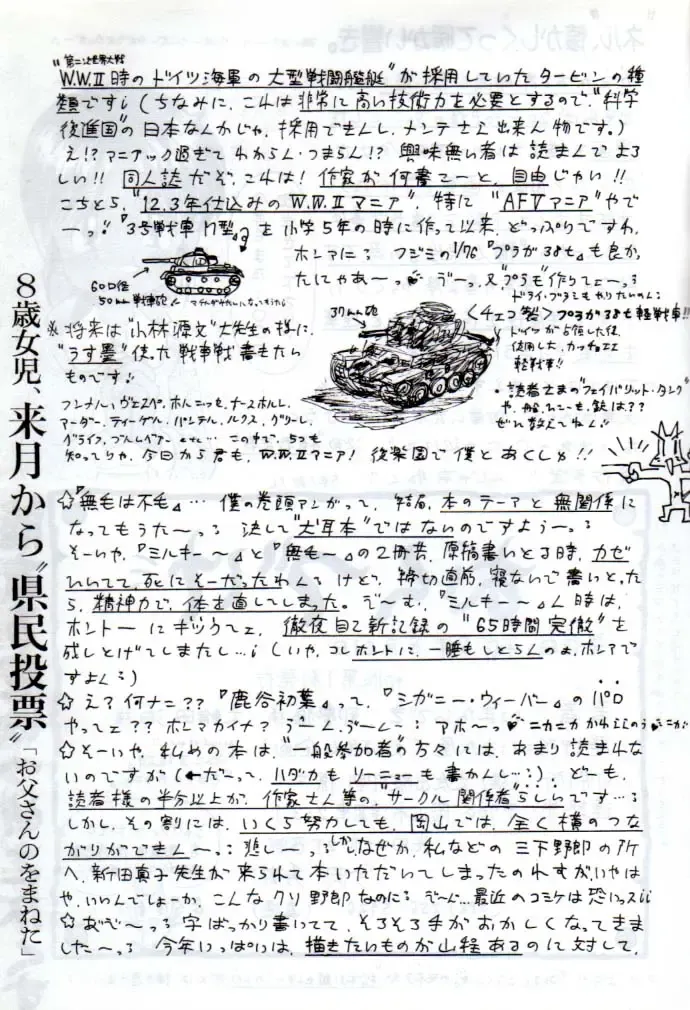 第二次世界大戦
"W.W.Ⅱ時のドイツ海軍の大型戦闘艦艇"が採用していたタービンの種
類です¡(ちなみに、これは非常に高い技術力を必要とするので、"科学
後進国"の日本なんかじゃ、採用できんし、メンテさえ出来ん物です。)
え!?マニアック過ぎてわからん・つまらん!?興味無い者は読まんでよろ
しい!!同人誌だぞ、これは!作家が何書てーと、自由じゃい!!
こちとら、"12.3年仕込みのW.W.Ⅱマニア"、特に"AFVマニア"やで
ーっ¡『3号戦車N型』を小学5年の時に作って以来、どっぷりですわ、
ホンマに¡フジミの1/76『プラガ38t』も良か
たにゃあ〜っ
60口径
50mm戦車砲
37mm砲
ドライ・ブラシもやりたいのん¡
〈チェコ製〉プラガ38t軽戦車!!
ドイツが占領した後、
使用した、カッチョエエ
軽戦車!!
※将来は"小林源文"大先生の様に、
"うす墨"使った戦車戦書きたい
ものです¡
・読者さまの"フェイバリット・タンク"
や、船、ひこーき、銃は??
ぜひ教えてね¡
フンメル、ヴェスペ、ホルニッセ、ナースホルン、
マーダー、ティーゲル、パンテル、ルクス、グリーレ、
この中で、5つも
知ってりゃ、今日から君も、W.W.Ⅱマニア!後楽園で僕とあくしゅ!!
☆『無毛は不毛』…僕の巻頭マンガって、結局、本のテーマと無関係に
なってもうた〜っ¡決して"犬耳本"ではないのですよう〜っ¡
そーいや、『ミルキー〜』と『無毛〜』の2冊共、原稿書いとる時、カゼ
ひいてて、死にそーだったわんてけど、締切直前、寝ないで書いとった
ら、精神力で、体を直してしまった。ぞ〜む¡『ミルキー〜』ん時は、
ホントーにキツクてェ、徹夜自己新記録の"65時間完徹"を
成しとげてしまたし…¡(いや、コレホントに、一睡もしとらんのょ、ホンマで
すよん¡)
☆え?何ナニ??『鹿谷初葉』って、『シガニー・ウィーバー』のパロ
やってェ??ホンマカイナ?うーんうーんー¡アホ〜っ
☆そーいや、私めの本は、"一般参加者"の方々には、あまり読まれな
いのですが(←だーって、ハダカもソーニューも書かんし…¡)、どーも、
読者様の半分以上が、作家さん等の、"サークル関係者"らしいです…¡
しかし、その割には、いくら努力しても、岡山では、全く横のつな
がりができん〜っ¡悲しーっ¡しかし、なぜか、私などの三下野郎の所
へ、新田真子先生が来られて本いただいてしまったのわすが、いいは
や、いいんでしょーか、こんなクソ野郎なのに¡ぞーん…最近のコミケは恐いっス¡¡
☆おぞ〜っ¡字ばっかり書いてて、そろそろ手がおかしくなってきま
した〜っ¡今年いっぱいは、描きたいものが山程あるのに対して、
8歳女児、来月から"県民投票"「お父さんのをまねた」